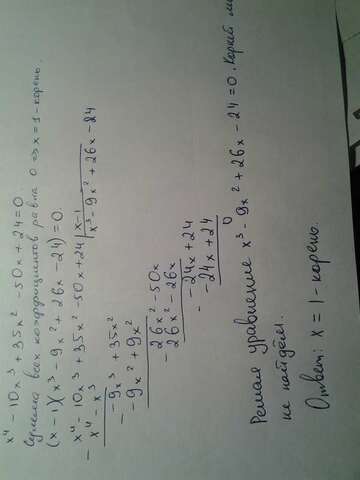 x⁴ - 10x³ + 35x² - 50x + 24 = 0
Сумма всех коэффициентов равна 0 => x = 1 - корень.
(x - 1)(x³ - 9x² + 26x - 24) = 0.
- x⁴ - 10x³ + 35x² - 50x + 24 | x - 1
x⁴ - x³ | x³ - 9x² + 26x - 24
- -9x³ + 35x²
-9x² + 9x²
- 26x² - 50x
26x² - 26x
- -24x + 24
-24x + 24
0
Решая уравнение x³ - 9x² + 26x - 24 = 0. Корней
не найдём.
Ответ: x = 1 - корень.